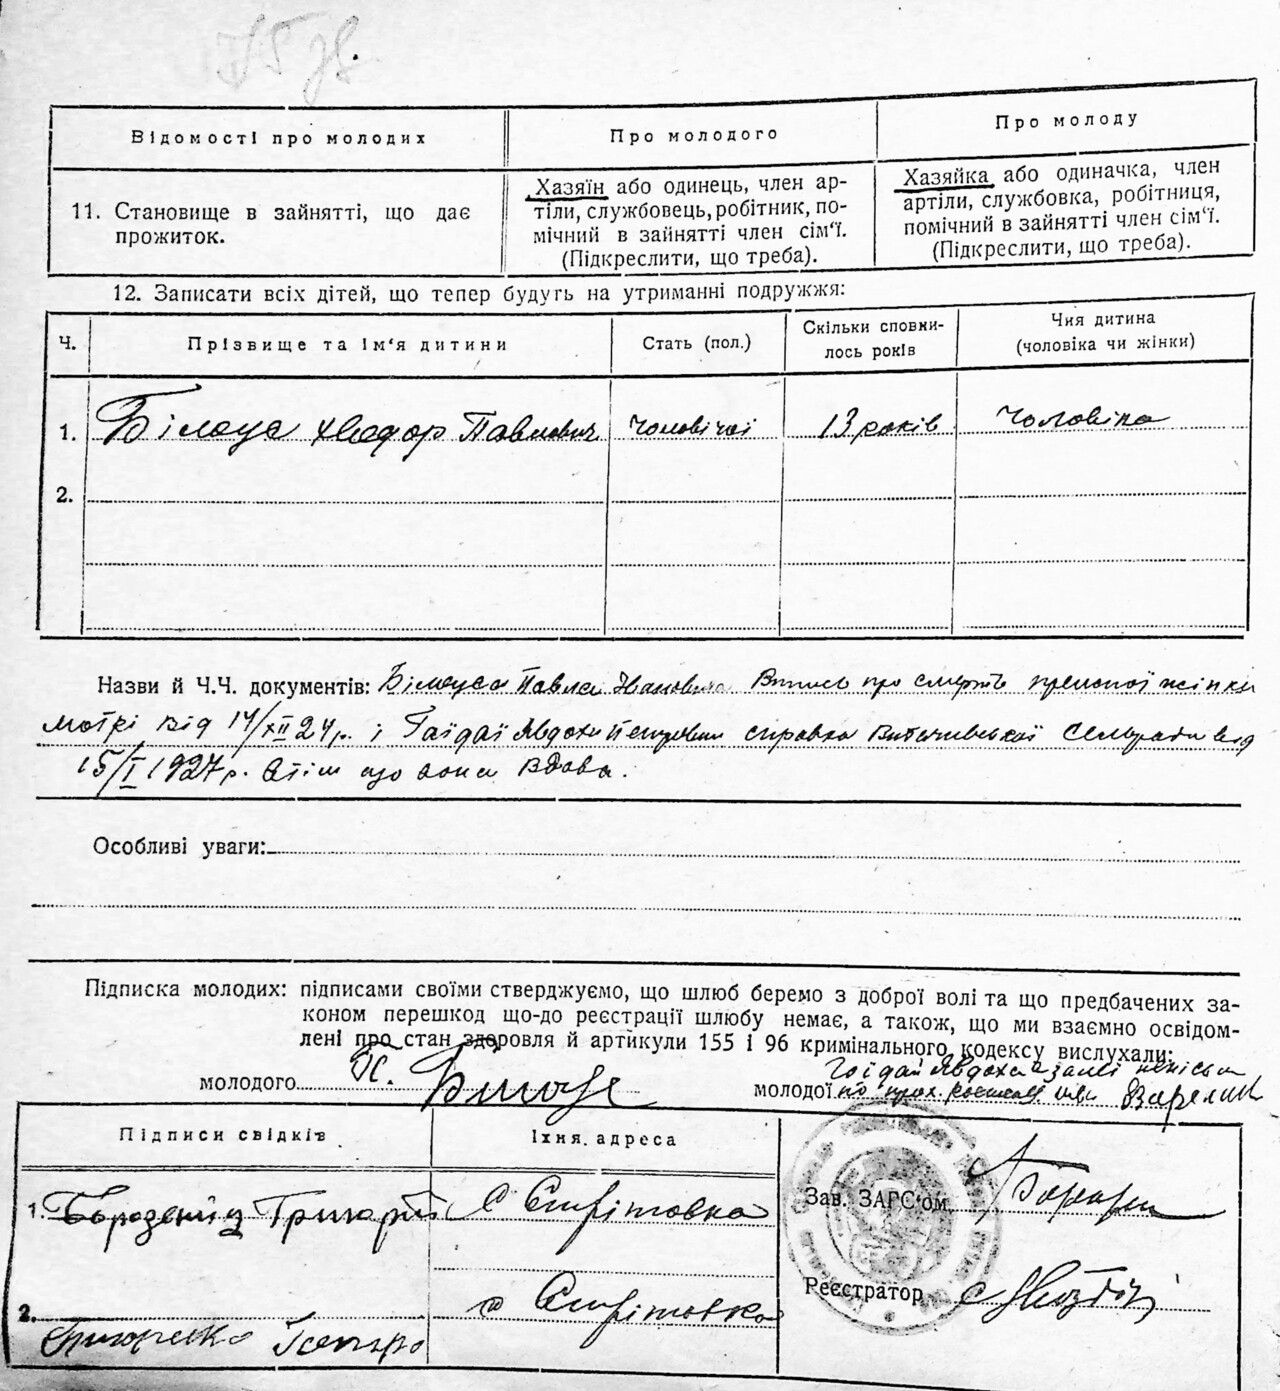 Відомості про молодих
Про молодого
Про молоду
11. Становище в зайнятті, що дає
прожиток.
Хазяїн або одинець, член ар-
тіли, службовець, робітник, по-
мічний в зайнятті член сім'ї.
(Підкреслити, що треба).
Хазяйка або одиначка, член
артіли, службовка, робітниця,
помічний в зайнятті член сім'ї.
(Підкреслити, що треба).
12. Записати всіх дітей, що тепер будуть на утриманні подружжя:
Ч.
Прізвище та ім'я дитини
Стать (пол.)
Скільки сповни-
лось років
Чия дитина
(чоловіка чи жінки)
1. Білоус Хведор Павлович чоловічої 13 років Чоловіка
2.
Назви й Ч.Ч. документів: Білоуса Павла Івановича Впись про смерть жінки
Мотрі від 14/XII 24 р. і Гайдай Явдохи Петровни справка Витачівської Сельради від
15/I 1927 р. Втім що вона Вдова.
Особливі уваги:
Підписка молодих: підписами своїми стверджуємо, що шлюб беремо з доброї волі та що предбачених за-
коном перешкод що-до реєстрації шлюбу немає, а також, що ми взаємно освідом-
лені про стан здоровля й артикули 155 і 96 кримінального кодексу вислухали:
молодого П. Білоус
Гайдай Явдоха а за неї
молодої по прох.
Підписи свідків
Їхня адреса
1. Григорій С Стрітовка
Зав. ЗАГС'ом
2. с Стрітовка
Реєстратор